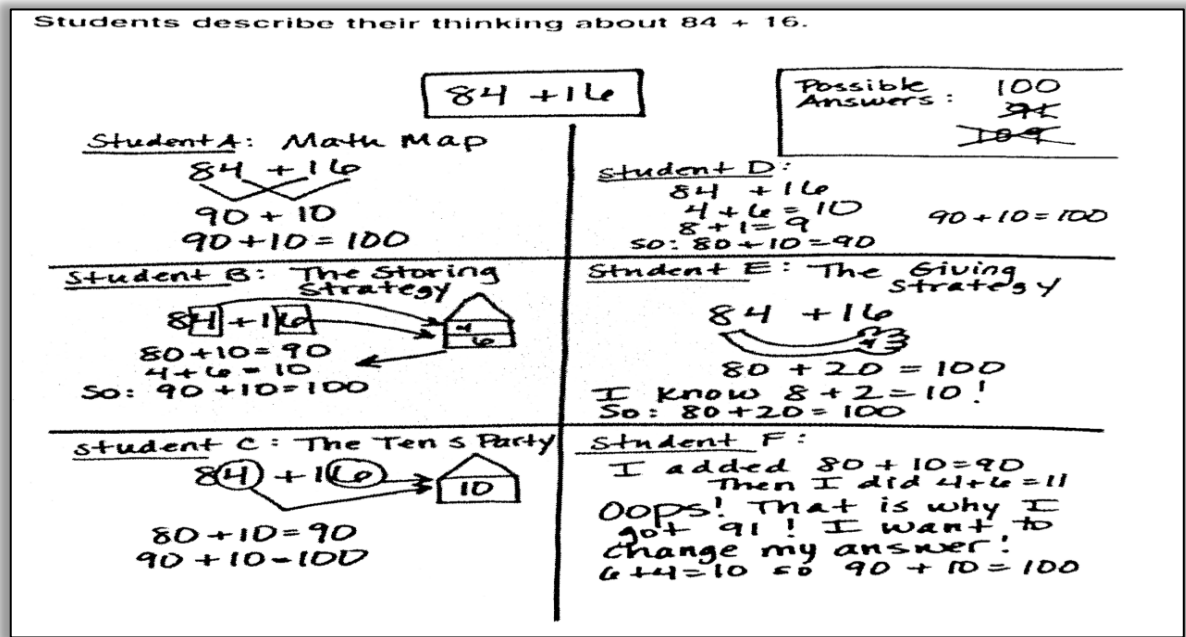 Students describe their thinking about 84 + 16.
84 + 16
Possible Answers: 100
91
109
Student A: Math Map
84 + 16
90 + 10
90 + 10 = 100
Student B: The Storing
Strategy
84 + 16
4
6
80 + 10 = 90
4 + 6 = 10
So: 90 + 10 = 100
Student C: The Tens Party
84 + 16
10
80 + 10 = 90
90 + 10 = 100
Student D:
84 + 16
4 + 6 = 10
8 + 1 = 9
So: 80 + 10 = 90
90 + 10 = 100
Student E: The Giving
Strategy
84 + 16
4
80 + 20 = 100
I know 8 + 2 = 10!
So: 80 + 20 = 100
Student F:
I added 80 + 10 = 90
Then I did 4 + 6 = 11
Oops! That is why I
got 91! I want to
change my answer!
6 + 4 = 10 so 90 + 10 = 100